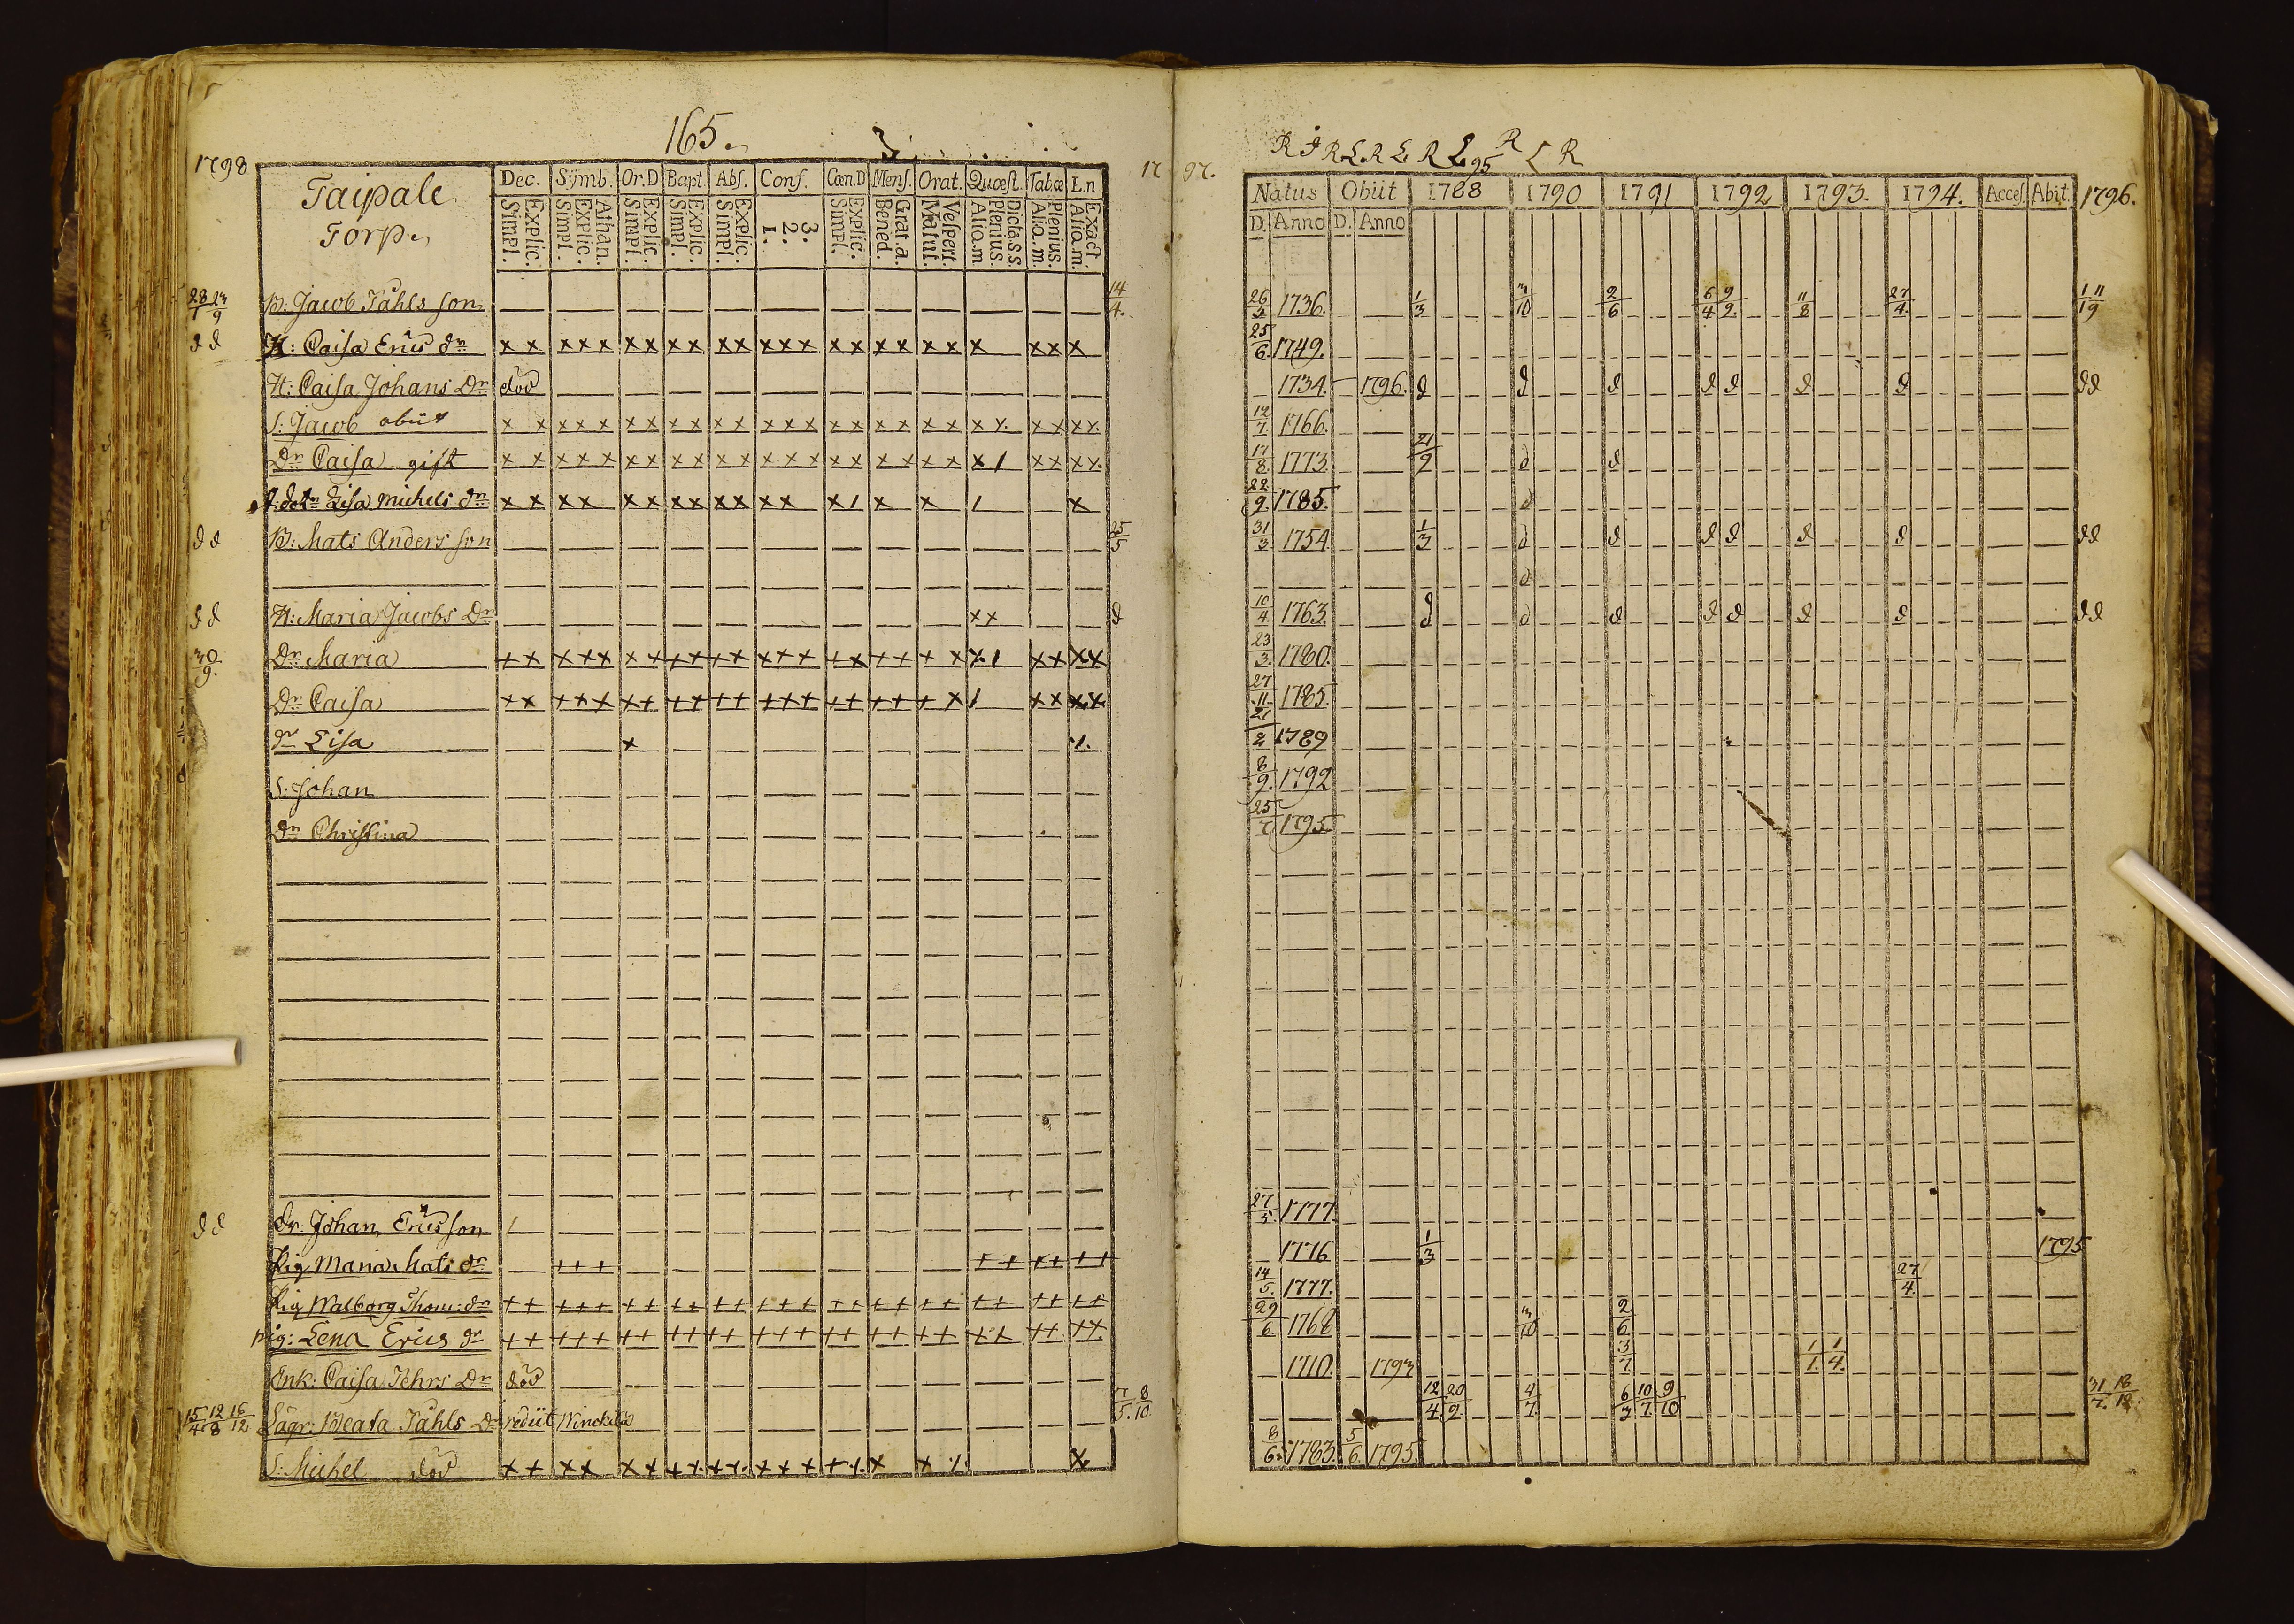 165.
1798
Taipale
Torp.
Dec. Symb. Or.D Bapt. Abs. Conf. Cœn.D Mens. Orat. Quæst. Tab.œ L.n
Explic. Simpl. Athan. Explic. Simpl. Explic. Simpl. Explic. Simpl. Explic. Simpl. 3. 2. 1. Explic. Simpl. Grat.a. Bened. Vespert. Matut. Dicta S.S. Plenius. Aliq.m Plenius. Aliq.m. Exact. Aliq.m.
28/1 23/9 B: Jacob Påhls son 14/4.
d d H: Caisa Erics dr x x x x x x x x x x x x x x x x x x x x x x x x
H: Caisa Johans Dr död
S: Jacob obiit x x x x x x x x x x x x x x x x x x x x x x x x x x
Dr Caisa gift x x x x x x x x x x x x x x x x x x x x x 1 x x x x
Lisa Michels dr x x x x x x x x x x x x x 1 x x 1 x
d d B: Mats Anders son 25/5
d d H: Maria Jacobs Dr x x d
30/9. Dr Maria x x x x x x x x x x x x x x x x x x x x x 1 x x x x
Dr Caisa x x x x x x x x x x x x x x x x x x x x 1 x x x x
dr Lisa x
S: Johan
Dr Christina
d d Dr: Johan Ericsson
Pig Maria Mats dr + + + + + + + + +
Pig Walborg Thom: dr + + + + + + + + + + + + + + + + + + + + + + + + + +
Pig: Lena Erics dr + + + + + + + + + + + + + + + + + + + + + + + + + +
Enk: Caisa Pehrs Dr död
15/4 12/8 16/12 Beata Påhls Dr rediit 7/5. 8/10
S: Michel död x x x x x x x x x x x x x x x
17 97.
R R L R L R L 95 R L R
Natus Obiit 1788 1790 1791 1792 1793. 1794. Acces. Abit. 1796.
D. Anno D. Anno
1736. 1/3 3/10 2/6 6/4 9/9. 11/8 27/4. 1/1 11/9
25/6. 1749.
1734. 1796. d d d d d d d d d
12/7. 1766.
17/8. 1773. 21/9 d d
22/9. 1785. d
31/3. 1754. 1/3 d d d d d d d d
d
10/4 1763. d d d d d d d d d
23/3. 1780.
27/11. 1785.
1789
8/9. 1792
25/7 1795.
27/5 1777.
1776 1/3 1795
14/5. 1777. 27/4.
29/6. 1768 3/10 2/6
1710. 1793 3/7. 1/1. 1/4.
12/4. 20/9. 4/7. 6/3 10/7. 9/10 31/7. 18/12.
8/6. 1783. 5/6. 1795.